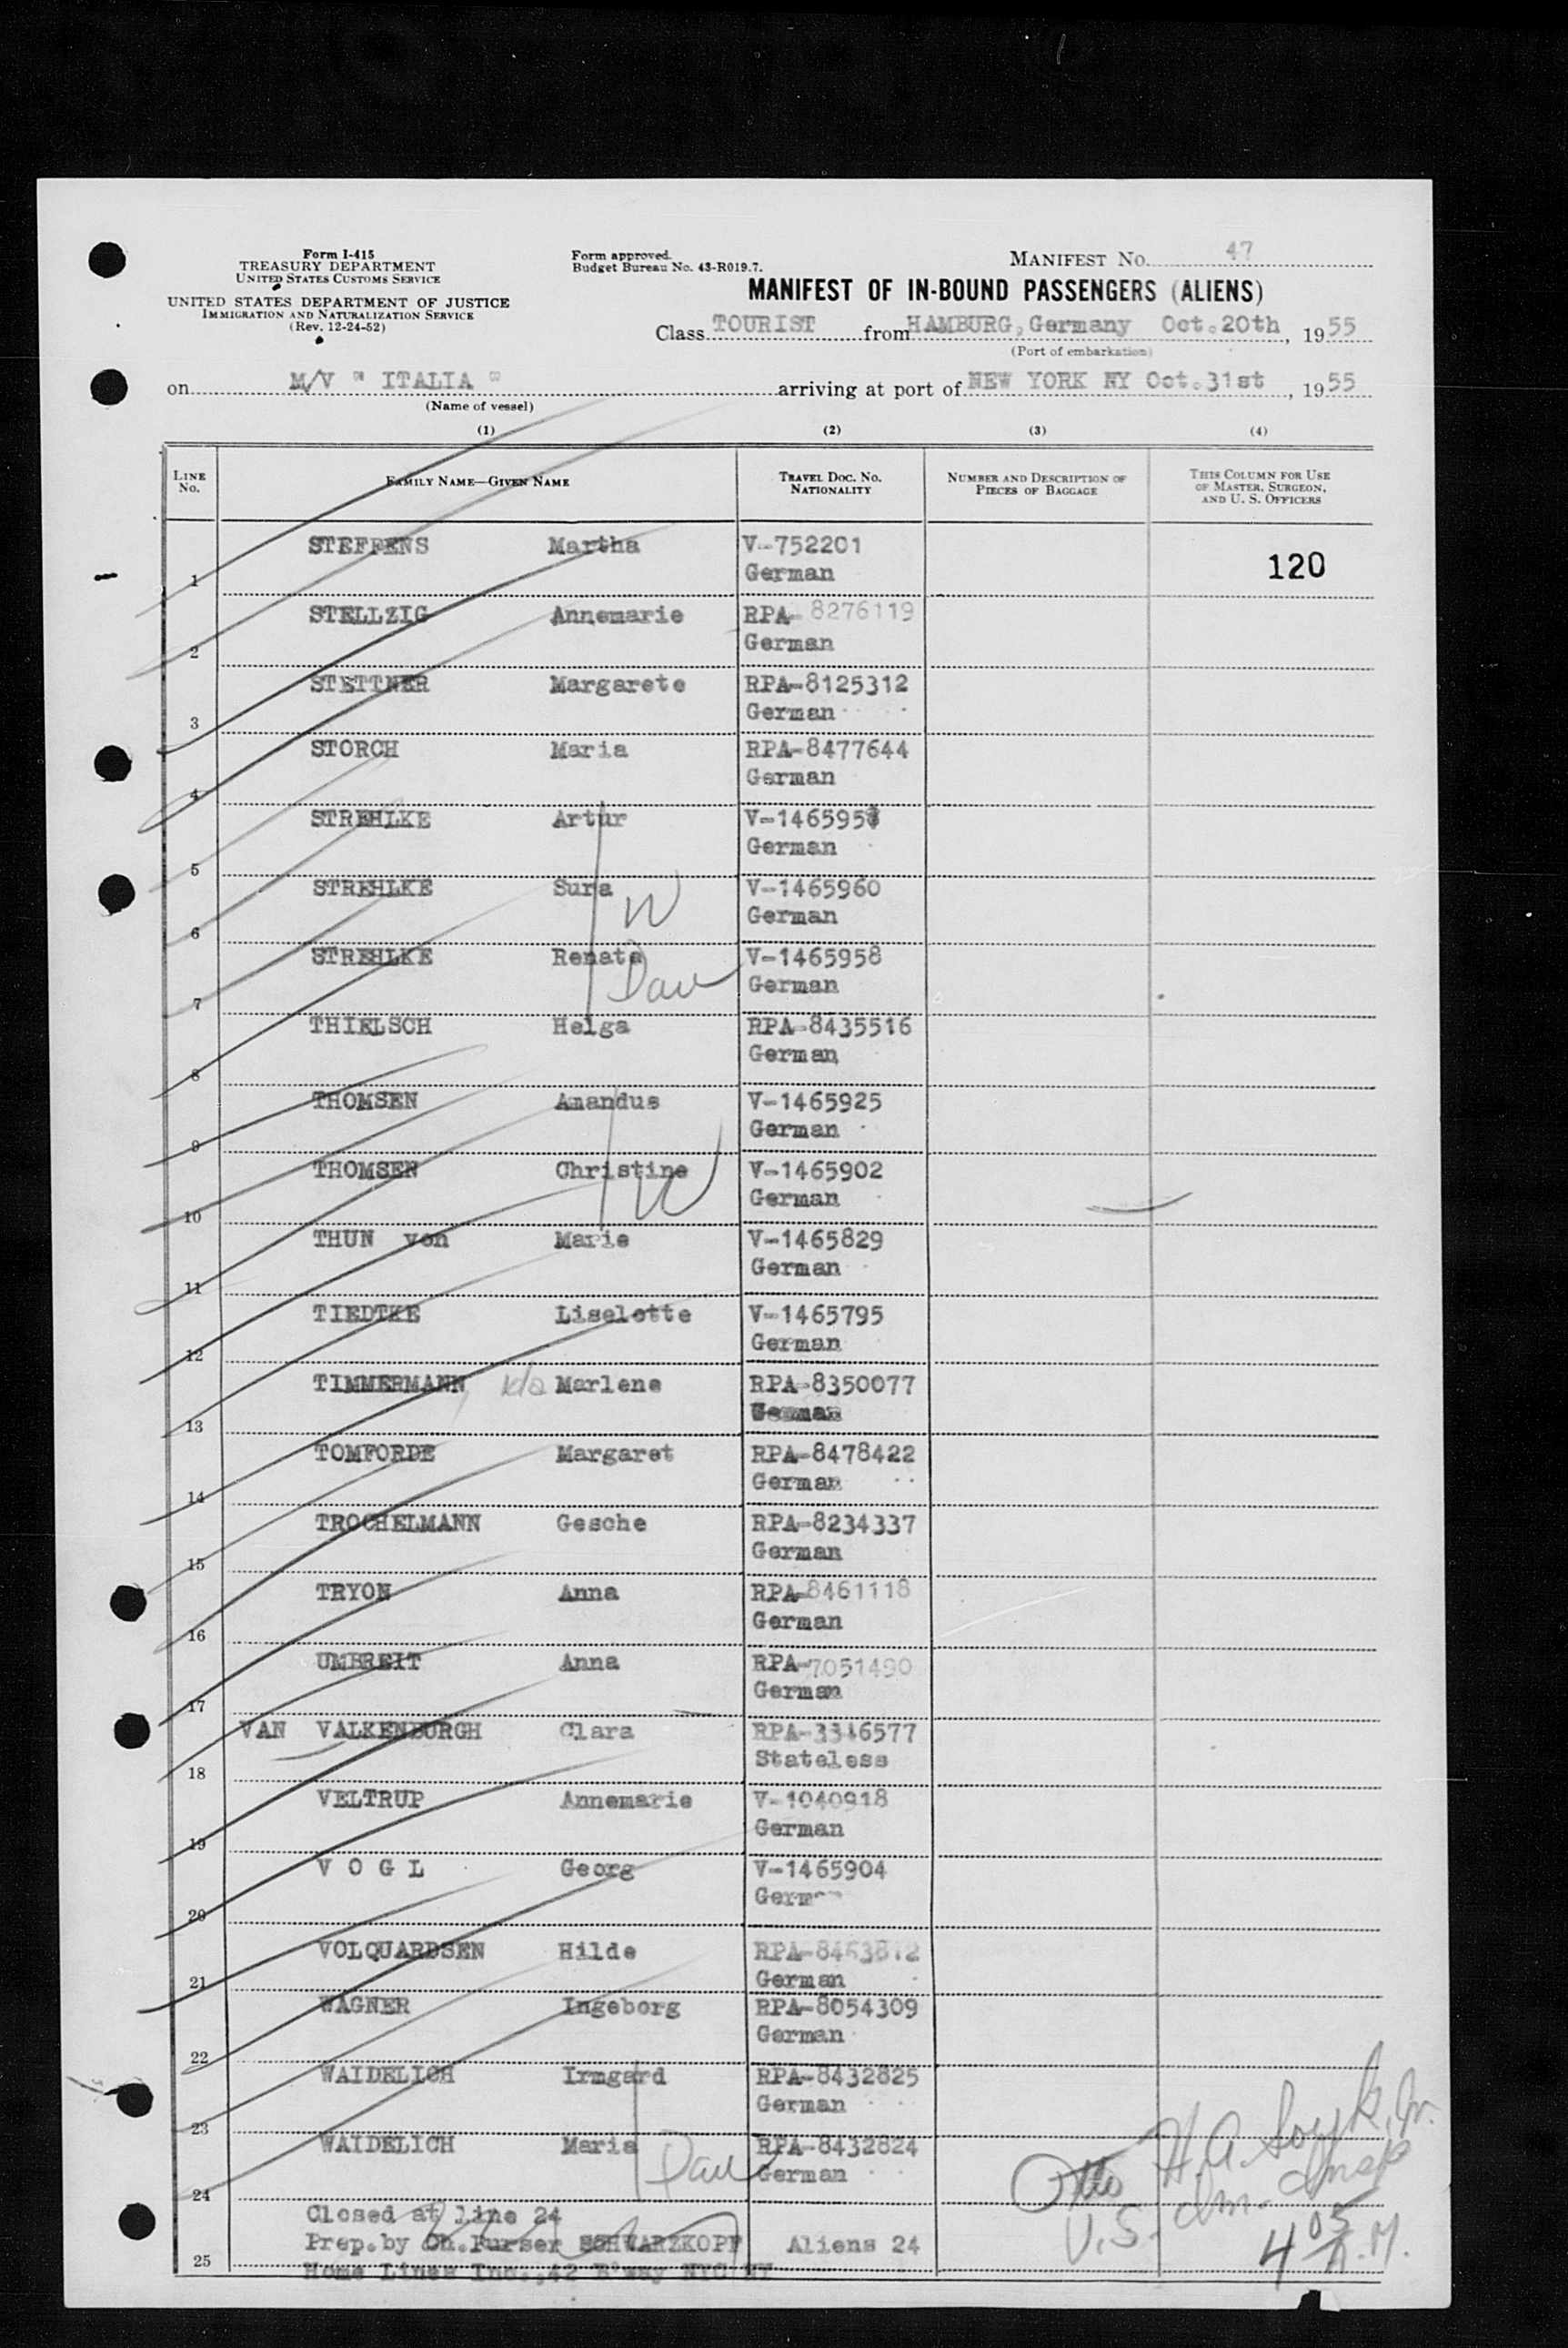 Form I-415
TREASURY DEPARTMENT
UNITED STATES CUSTOMS SERVICE
UNITED STATES DEPARTMENT OF JUSTICE
IMMIGRATION AND NATURALIZATION SERVICE
(Rev. 12-24-52)
Form approved.
Budget Bureau No. 43-R019.7.
MANIFEST NO. 47
MANIFEST OF IN-BOUND PASSENGERS (ALIENS)
Class TOURIST from HAMBURG, Germany Oct. 20th, 1955
(Port of embarkation)
on M/V " ITALIA " arriving at port of NEW YORK NY Oct. 31st, 1955
(Name of vessel)
(1) (2) (3) (4)
LINE No. FAMILY NAME—GIVEN NAME TRAVEL DOC. NO. NATIONALITY NUMBER AND DESCRIPTION OF PIECES OF BAGGAGE THIS COLUMN FOR USE OF MASTER, SURGEON, AND U. S. OFFICERS
STEFFENS Martha V-752201
1 German 120
STELLZIG Annemarie RPA-8276119
2 German
STETTNER Margarete RPA-8125312
3 German
STORCH Maria RPA-8477644
4 German
STREHLKE Artur V-146595
5 German
STREHLKE Sura V-1465960
6 W German
STREHLKE Renate V-1465958
7 Dau German
THIELSCH Helga RPA-8435516
8 German
THOMSEN Amandus V-1465925
9 German
THOMSEN Christine V-1465902
10 W German
THUN von Marie V-1465829
11 German
TIEDTKE Liselotte V-1465795
12 German
TIMMERMANN, Ida Marlene RPA-8350077
13 German
TOMFORDE Margaret RPA-8478422
14 German
TROCHELMANN Gesche RPA-8234337
15 German
TRYON Anna RPA-8461118
16 German
UMBREIT Anna RPA-7051490
17 German
VAN VALKENBURGH Clara RPA-3346577
18 Stateless
VELTRUP Annemarie V-1040918
19 German
V O G L Georg V-1465904
20 German
VOLQUARDSEN Hilde RPA-8463812
21 German
WAGNER Ingeborg RPA-8054309
22 German
WAIDELICH Irmgard RPA-8432825
23 German
WAIDELICH Maria RPA-8432824
24 Dau German
Closed at line 24
Prep. by Ch. Purser SCHWARZKOPF Aliens 24
25 Home Lines Inc., 42 B'way NYC NY
Otto H. A.
U.S. Im. Insp
4 05 A.M.